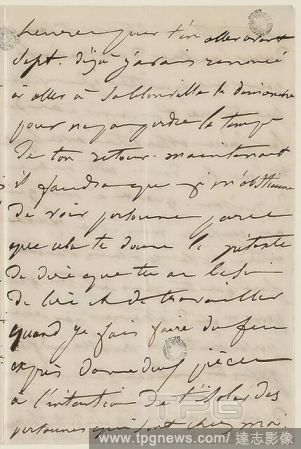 heures pour t'en aller avant
sept. déjà j'avais renoncé
à aller à Sablonville le dimanche
pour ne pas perdre le temps
de ton retour. maintenant
il faudra que je m'abstienne
de voir personne parce
que cela te donne le prétexte
de dire que tu as besoin
de lire et de travailler
quand je fais faire du feu
exprès dans deux pièces
à l'intention de t'isoler des
personnes qui sont chez moi
TPG
www.tpgnews.com/達志影像